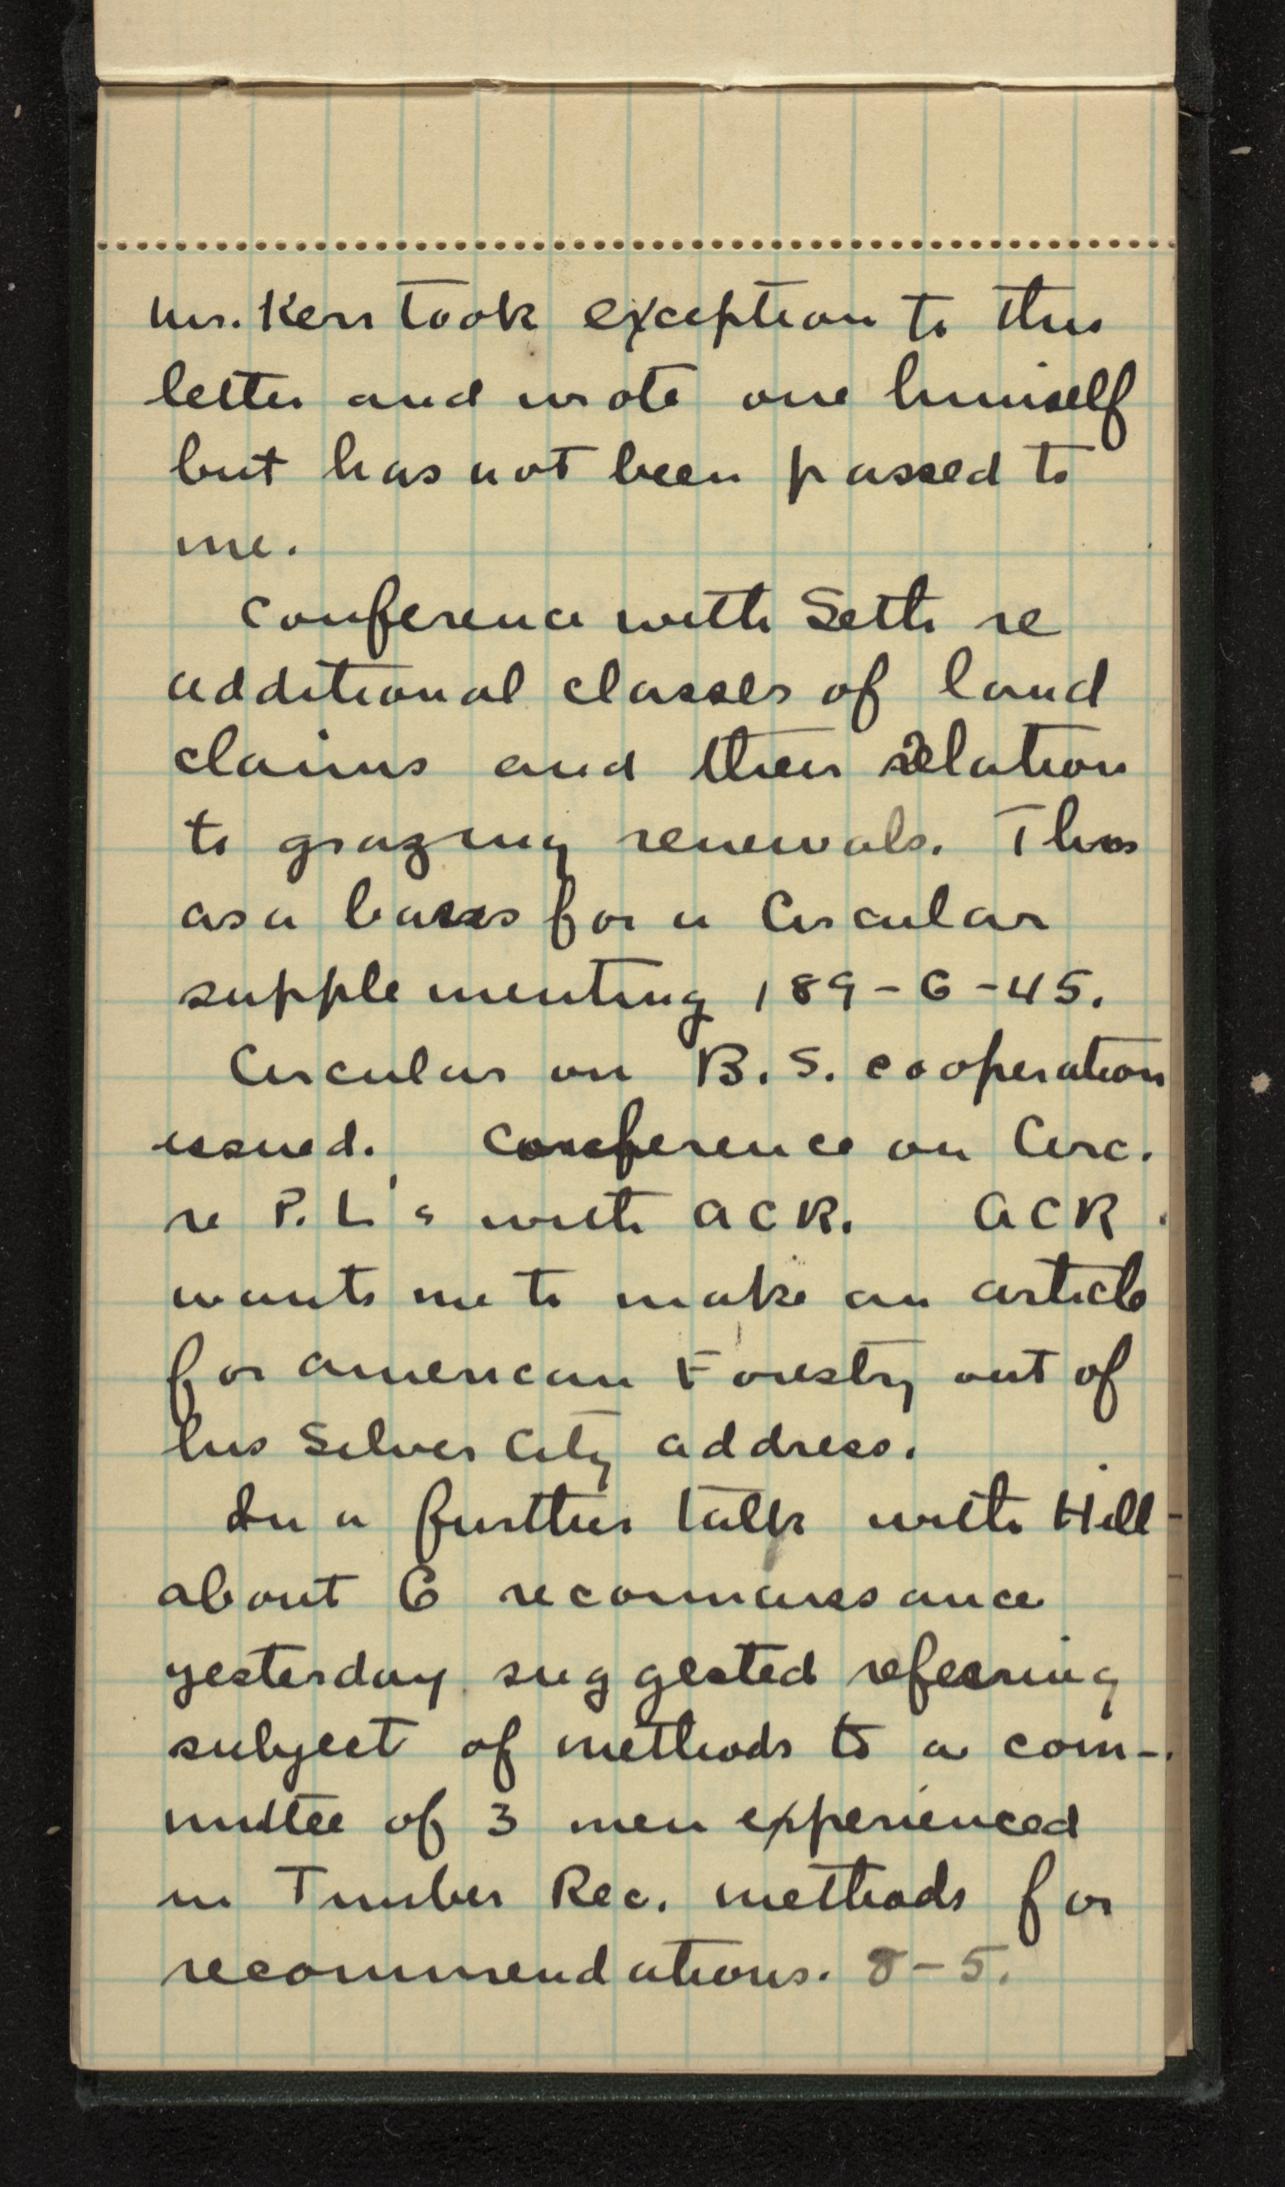 Mr. Kerr took exception to this
letter and wrote one himself
but has not been passed to
me.
Conference with Seth re
additional classes of land
claims and their relation
to grazing renewals. This
as a basis for a Circular
supplementing 189-G-45.
Circular on B.S. cooperation
issued. Conference on Circ.
re P.L.'s with ACR. ACR
wants me to make an article
for American Forestry out of
his Silver City address.
In a further talk with Hill
about G reconnaissance
yesterday suggested refering
subject of methods to a com-
mittee of 3 men experienced
in Timber Rec. methods for
recommendations. 8-5.